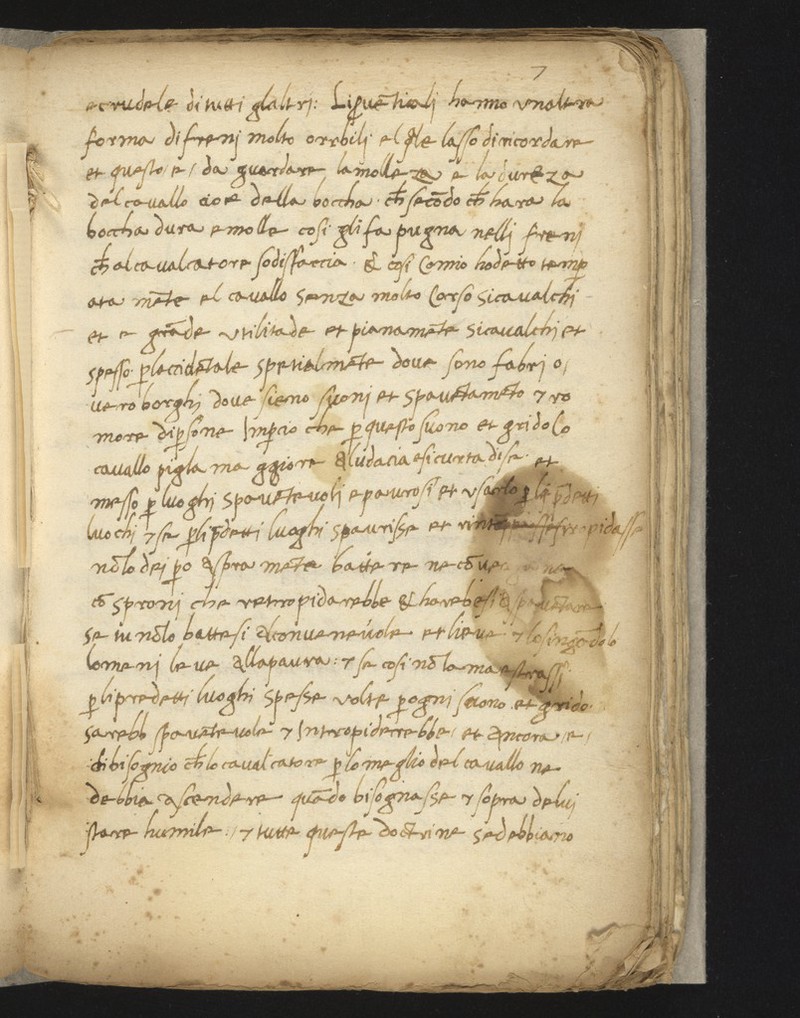 7
e crudele di tutti glaltri: Li pruētiali hanno unaltra
forma di freni molto orrbili el q̄le lasso di ricordare
et questo / e / da guardare la molleza e la dureza
del cavallo cioe della boccha · ch̄ secōdo ch̄ hara la
boccha dura e molle cosi gli fa pugna nelli freni
ch̄ al cavalcatore sodisfaccia · & cosi Comio ho detto temp̄
ata mēte el cavallo senza molto Corso si cavalchi
et e grāde utilitade et pianamēte si cavalchi et
spesso p̄ laccidētale spetialmēte dove sono fabri o /
vero borghi dove sieno suoni et spavētamēto 7 ro
more di p̄sone Imp̄cio che p̄ questo suono et grido lo
cavallo pigla maggiore Audacia e sicurta di se · et
messo p̄ luoghi spavētevoli e paurosi et usarlo p̄ li p̄detti
luochi 7 se p̄ li p̄detti luoghi spaurisse et rintropidasse
nōlo dei p̄o aspra mēte battere ne cō
cō sproni che retropidarebbe & harebesi a spavētare
se tu nōlo battesi Alconuenevole et lieve 7 losingādolo
lo meni leve Alla paura: 7 se cosi nōlo maestrassi
p̄ li predetti luoghi spesse volte p̄ ogni suono et grido
sarebb spavētevole 7 Intropiderrebbe / et Ancora / e /
di bisognio ch̄ lo cavalcatore p̄ lo meglio del cavallo ne
debbia ascendere quādo bisognasse 7 sopra de lui
stare humile : 7 tutte queste doctrine se debbiano